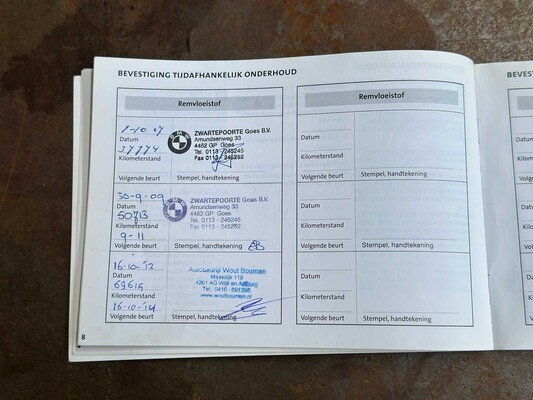 BEVESTIGING TIJDAFHANKELIJK ONDERHOUD
Remvloeistof
1-10 07
Datum
37774
Kilometerstand
Volgende beurt
BMW
ZWARTEPOORTE Goes B.V.
Amundsenweg 33
4462 GP Goes
Tel. 0113 - 245245
Fax 0113 - 245252
Stempel, handtekening
30-9-09
Datum
50713
Kilometerstand
9-11
Volgende beurt
BMW
ZWARTEPOORTE Goes B.V.
Amundsenweg 33
4462 GP Goes
Tel. 0113 - 245245
Fax 0113 - 245252
Stempel, handtekening
16-10-'12
Datum
69615
Kilometerstand
16-10-'14
Volgende beurt
Autobedrijf Wout Bouman
Maasdijk 119
4261 AG Wijk en Aalburg
Tel.: 0416 - 691396
www.woutbouman.nl
Stempel, handtekening
8
Remvloeistof
Datum
Kilometerstand
Volgende beurt
Stempel, handtekening
Datum
Kilometerstand
Volgende beurt
Stempel, handtekening
Datum
Kilometerstand
Volgende beurt
Stempel, handtekening
BEVES
Datum
Kilomet
Volgend
Datum
Kilomet
Volgend
Datum
Kilomet
Volgen